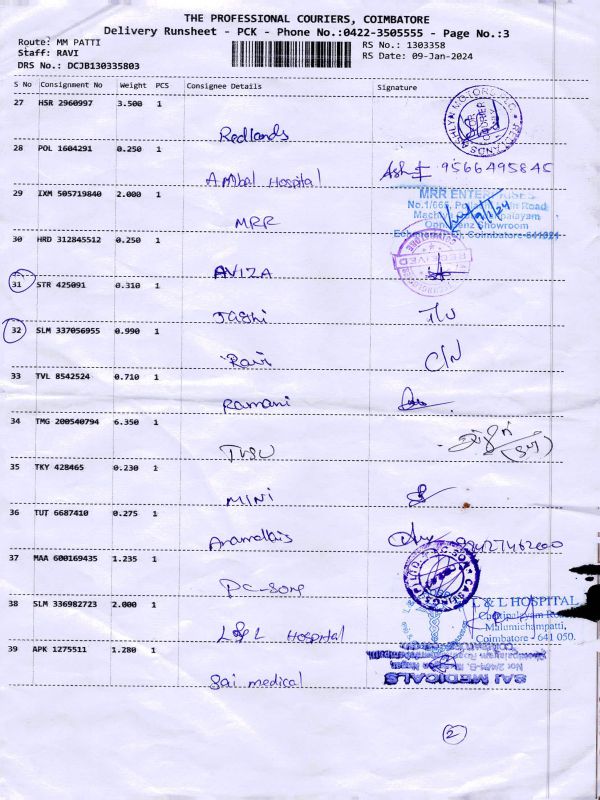 THE PROFESSIONAL COURIERS, COIMBATORE
Delivery Runsheet - PCK - Phone No.:0422-3505555 - Page No.:3
Route: MM PATTI
Staff: RAVI
DRS No.: DCJB130335803
RS No.: 1303358
RS Date: 09-Jan-2024
S No Consignment No Weight PCS Consignee Details Signature
27 HSR 2960997 3.500 1
Redlands
28 POL 1604291 0.250 1
Ambal Hospital 9566495845
29 IXM 505719840 2.000 1
MRR
MRR ENTERPRISES
Coimbatore-641021
30 HRD 312845512 0.250 1
AVIZA
RECEIVED
31 STR 425091 0.310 1
32 SLM 337056955 0.990 1
Ravi C/N
33 TVL 8542524 0.710 1
Ramani
34 TMG 200540794 6.350 1
35 TKY 428465 0.230 1
MINI
36 TUT 6687410 0.275 1
37 MAA 600169435 1.235 1
38 SLM 336982723 2.000 1
L & L Hospital
L & L HOSPITAL
Malumichampatti,
Coimbatore - 641 050.
39 APK 1275511 1.280 1
Sai medical
SAI MEDICALS
2